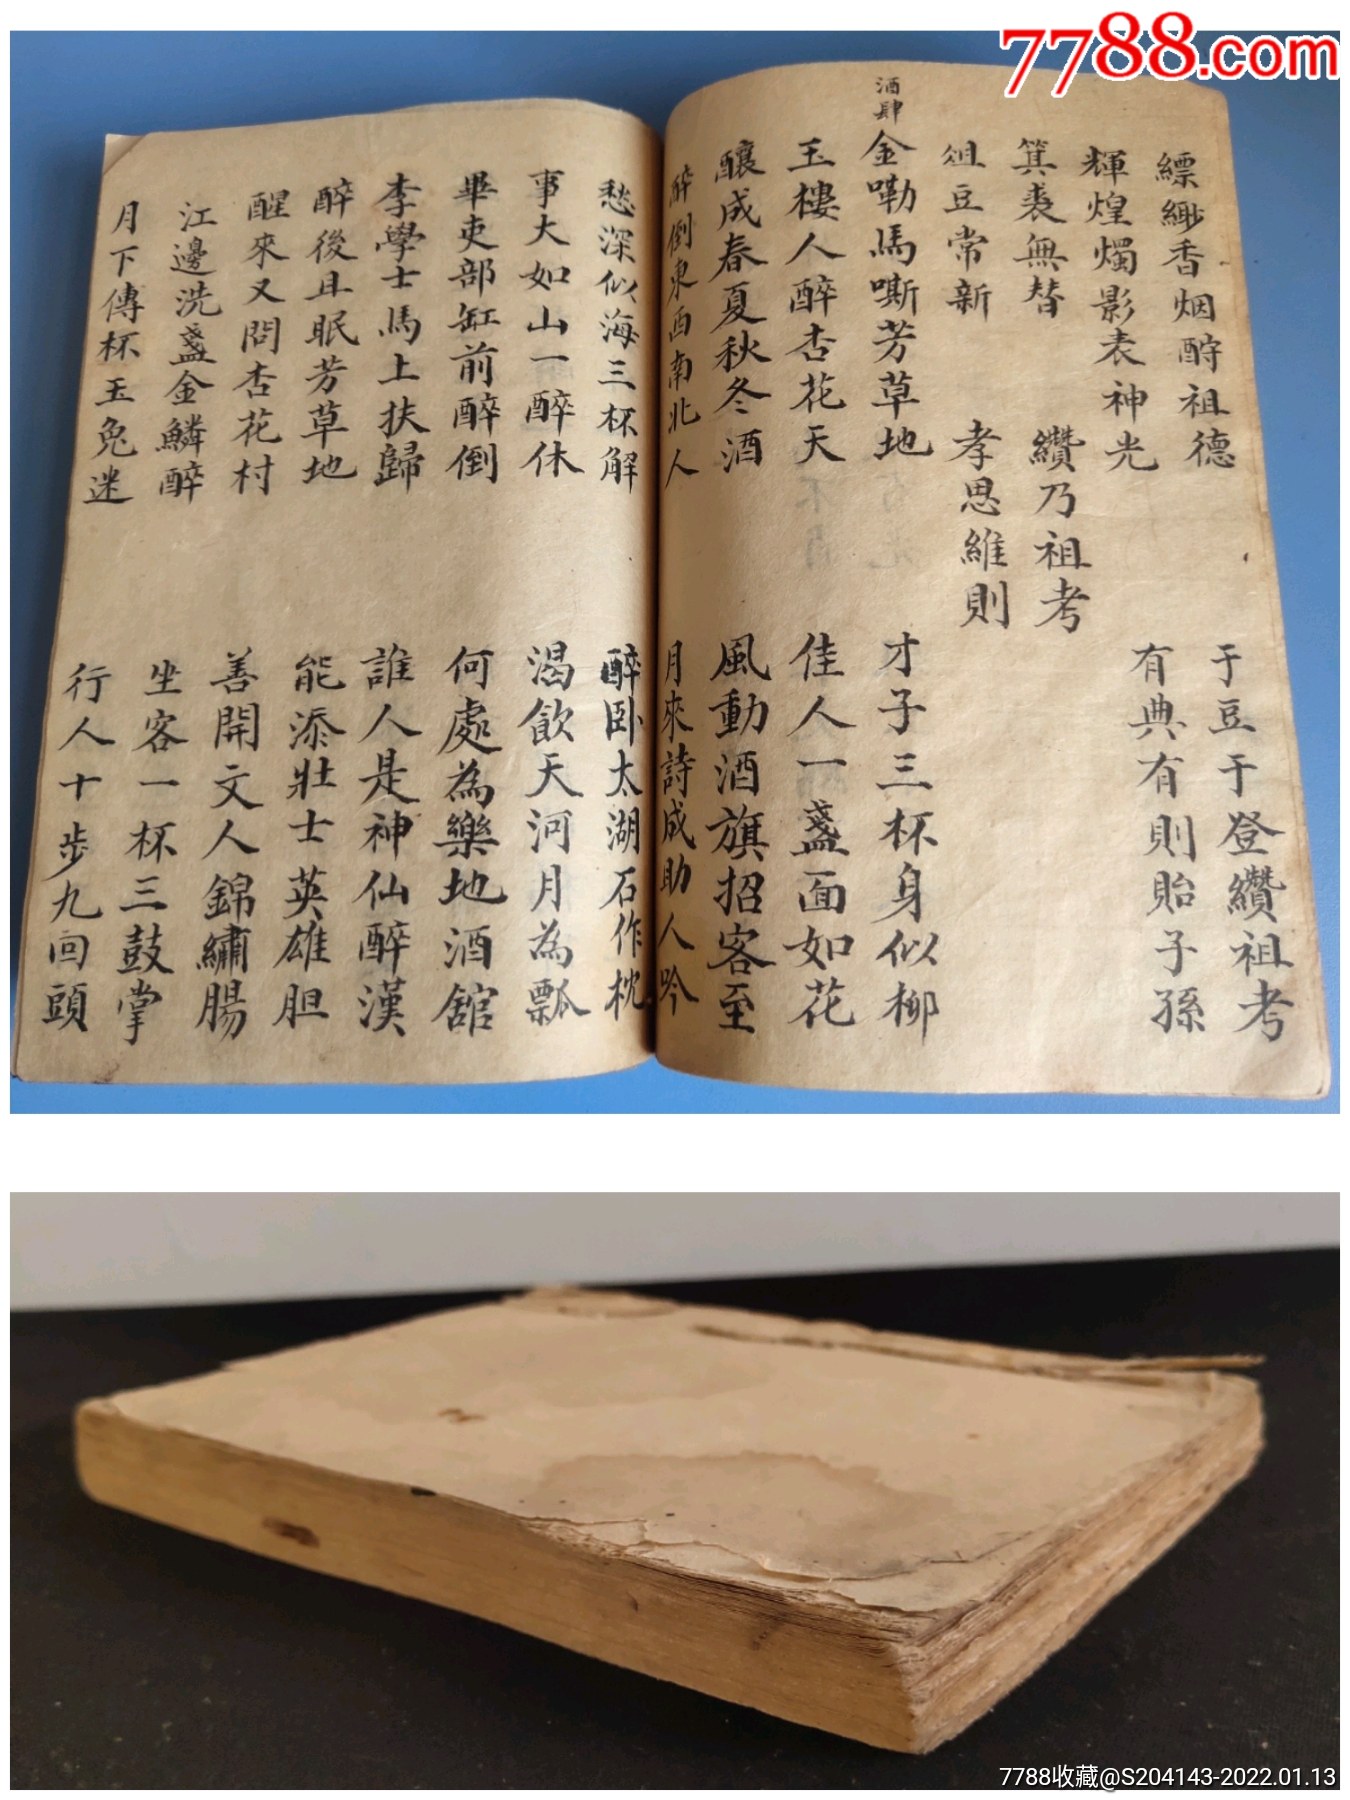 7788.com
縹緲香烟酧祖德
于豆于登纘祖考
輝煌燭影表神光
有典有則貽子孫
箕裘無替
纘乃祖考
俎豆常新
孝思維則
酒肆
金嘞馬嘶芳草地
才子三杯身似柳
玉樓人醉杏花天
佳人一盞面如花
釀成春夏秋冬酒
風動酒旗招客至
醉倒東西南北人
月來詩成助人吟
愁深似海三杯解
醉卧太湖石作枕
事大如山一醉休
渴飲天河月為瓢
畢吏部缸前醉倒
何處為樂地酒館
李學士馬上扶歸
誰人是神仙醉漢
醉後且眠芳草地
能添壯士英雄胆
醒來又問杏花村
善開文人錦繡腸
江邊洗盞金鱗醉
坐客一杯三鼓掌
月下傳杯玉兔迷
行人十步九回頭
7788收藏@S204143-2022.01.13